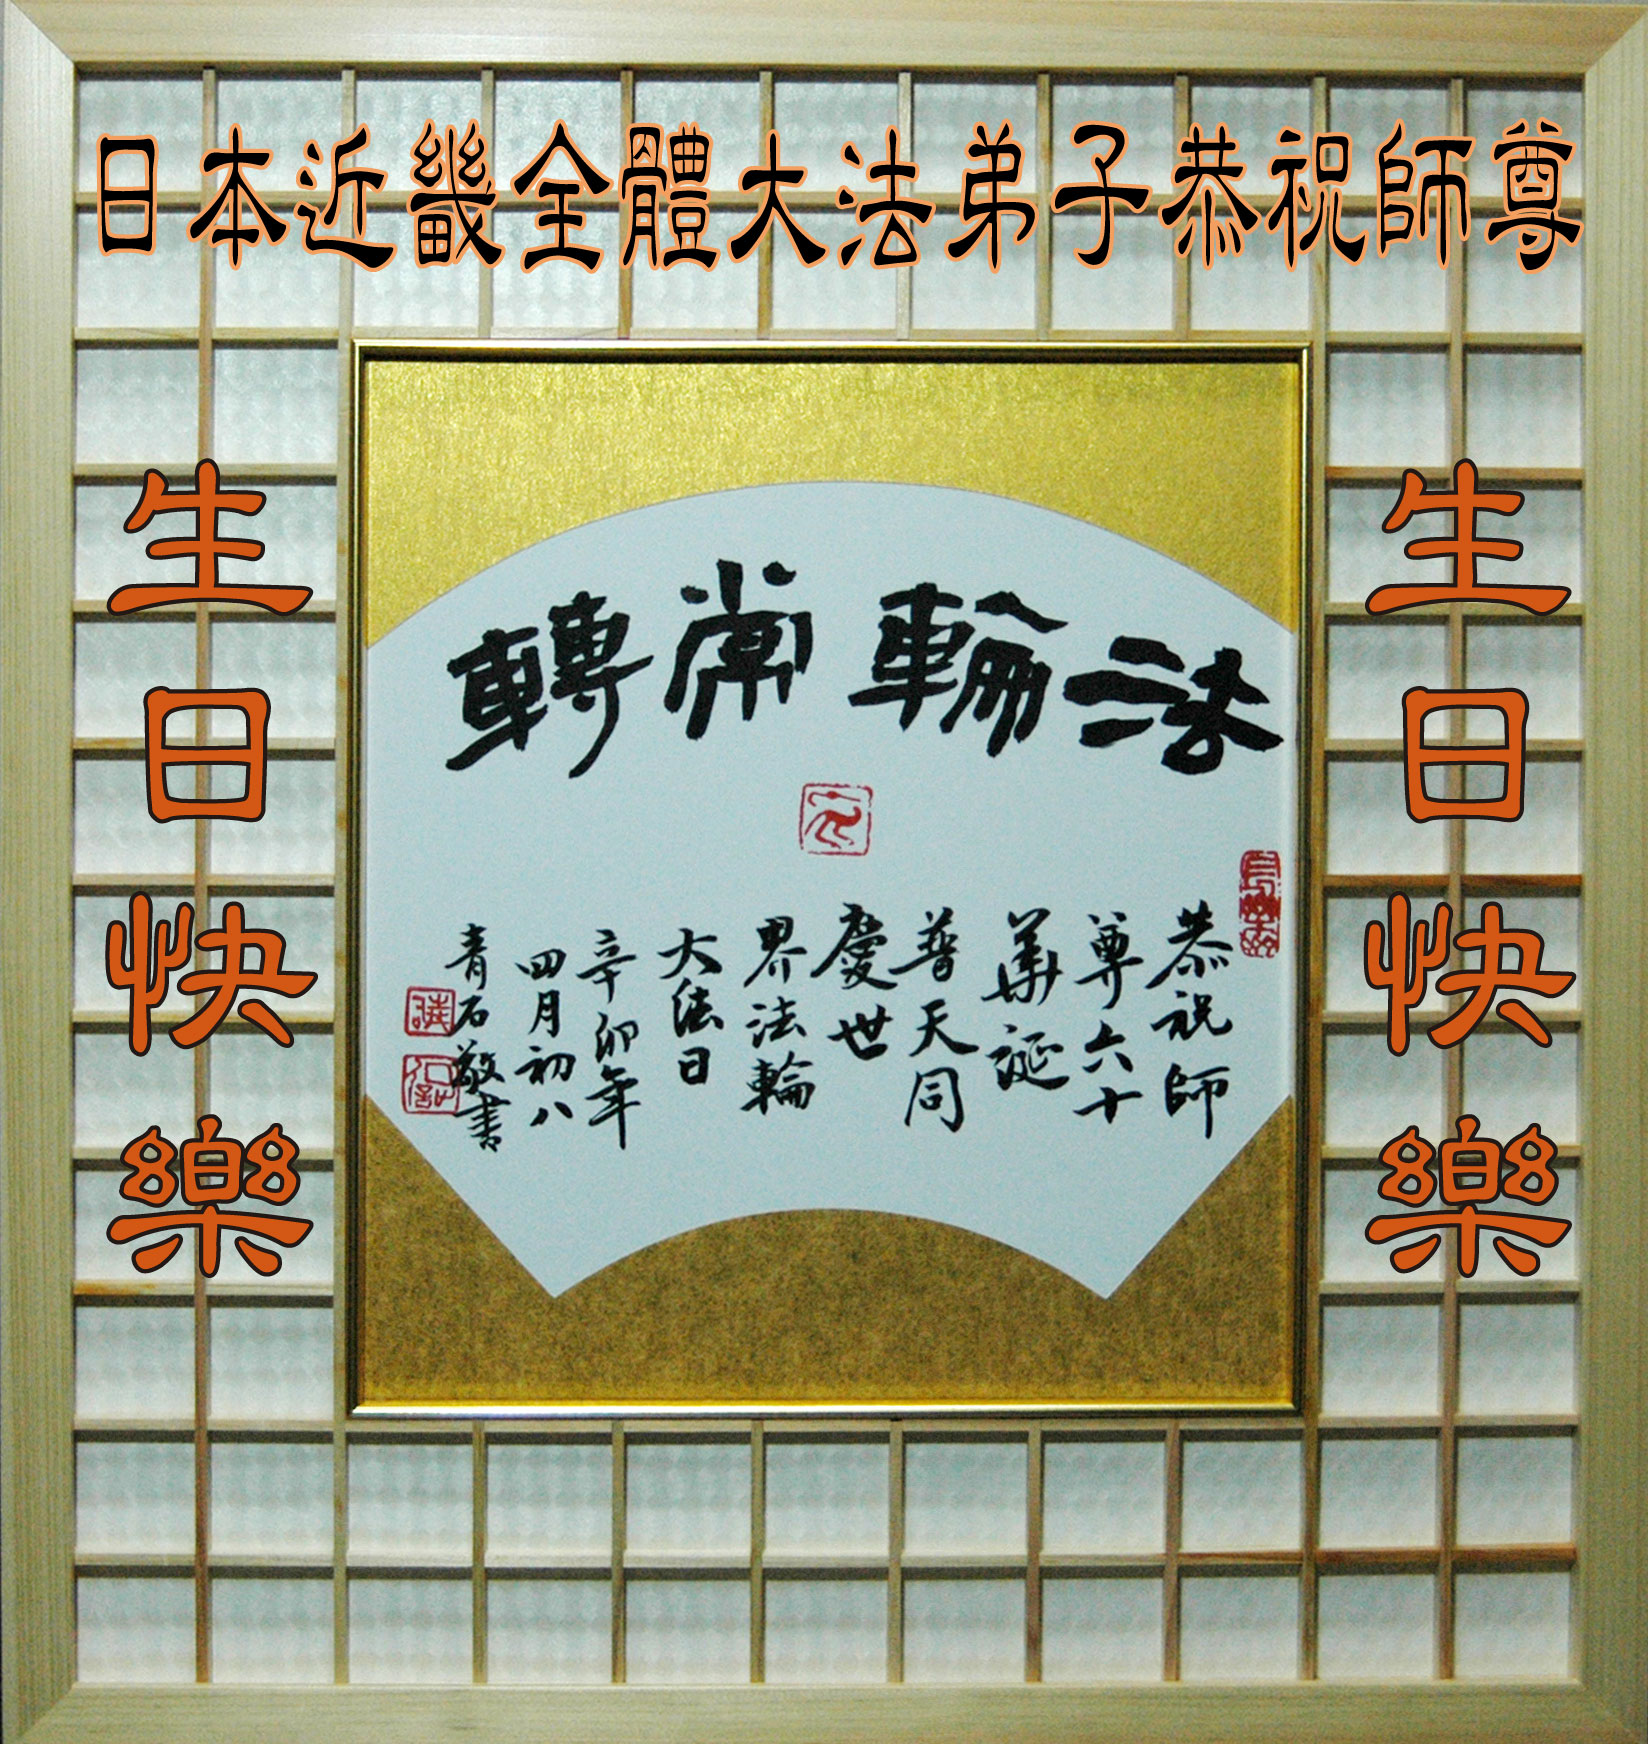 日本近畿全體大法弟子恭祝師尊
生日快樂
生日快樂
法輪常轉
恭祝師
尊六十
華誕
普天同
慶世
界法輪
大法日
辛卯年
四月初八
青石敬書